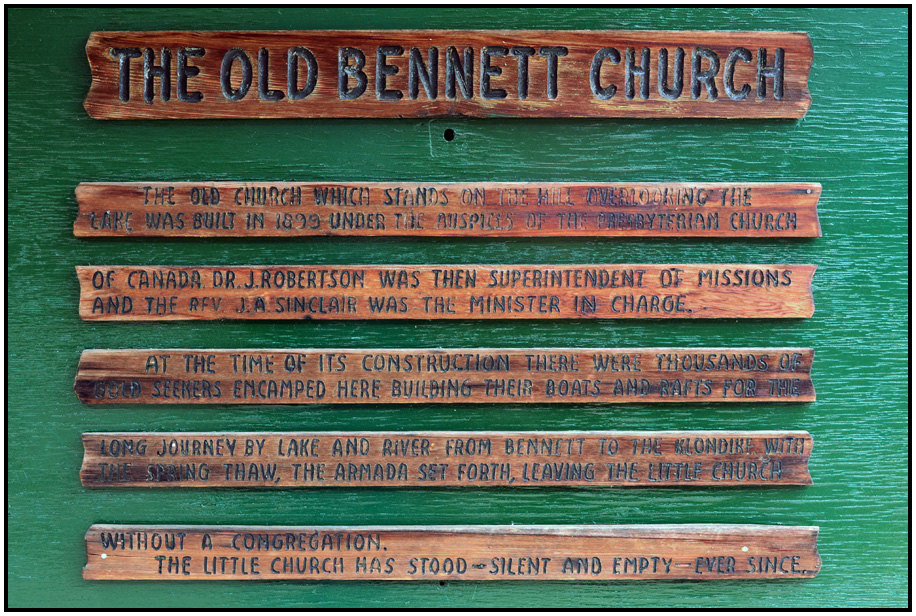 THE OLD BENNETT CHURCH
THE OLD CHURCH WHICH STANDS ON THE HILL OVERLOOKING THE
LAKE WAS BUILT IN 1899 UNDER THE AUSPICES OF THE PRESBYTERIAN CHURCH
OF CANADA. DR. J. ROBERTSON WAS THEN SUPERINTENDENT OF MISSIONS
AND THE REV. J.A. SINCLAIR WAS THE MINISTER IN CHARGE.
AT THE TIME OF ITS CONSTRUCTION THERE WERE THOUSANDS OF
GOLD SEEKERS ENCAMPED HERE BUILDING THEIR BOATS AND RAFTS FOR THE
LONG JOURNEY BY LAKE AND RIVER FROM BENNETT TO THE KLONDIKE. WITH
THE SPRING THAW, THE ARMADA SET FORTH, LEAVING THE LITTLE CHURCH
WITHOUT A CONGREGATION.
THE LITTLE CHURCH HAS STOOD - SILENT AND EMPTY - EVER SINCE.